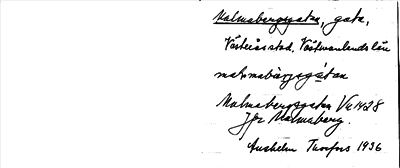 Malmabergsgatan, gata,
Västerås stad, Västmanlands län
malmabärjsgátan
Malmabergsgatan Vä 1428
Jfr Malmaberg.
Anshelm Törnfors 1936